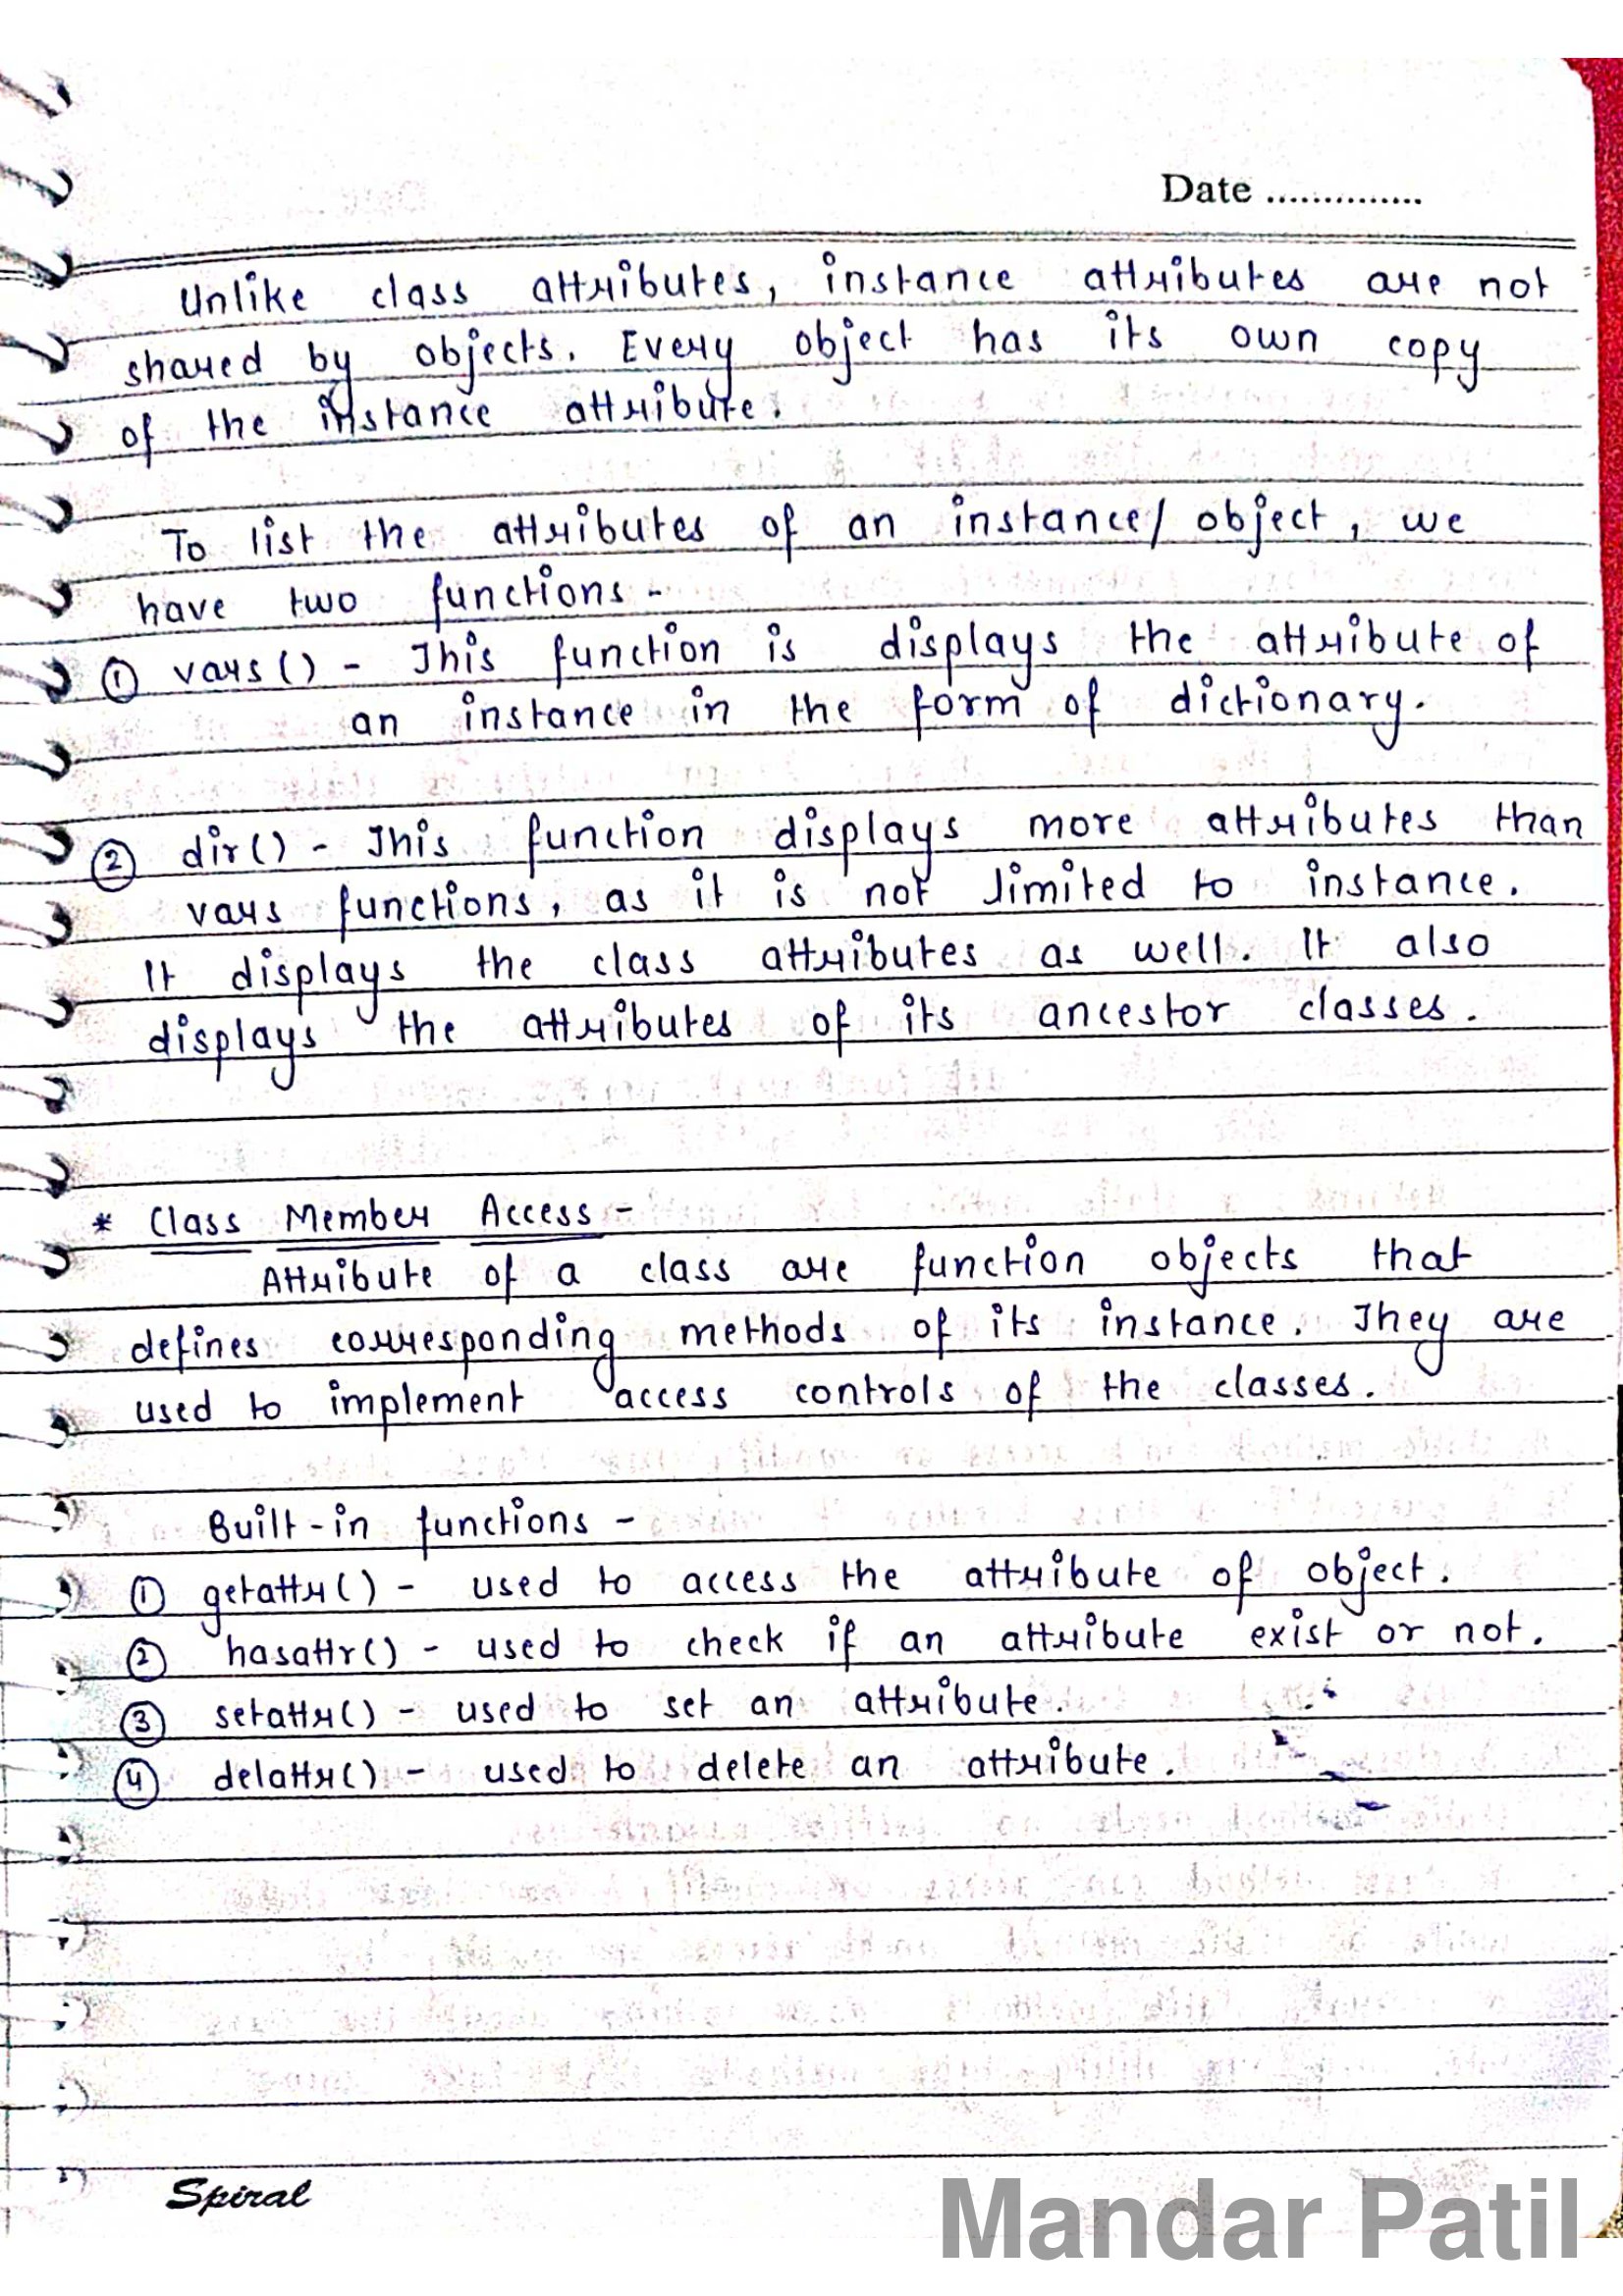 Date ..............
Unlike class attributes, instance attributes are not
shared by objects. Every object has its own copy
of the instance attribute.
To list the attributes of an instance/ object, we
have two functions -
① vars() - This function is displays the attribute of
an instance in the form of dictionary.
② dir() - This function displays more attributes than
vars functions, as it is not limited to instance.
It displays the class attributes as well. It also
displays the attributes of its ancestor classes.
* Class Member Access -
Attribute of a class are function objects that
defines corresponding methods of its instance. They are
used to implement access controls of the classes.
Built-in functions -
① getattr() - used to access the attribute of object.
② hasattr() - used to check if an attribute exist or not.
③ setattr() - used to set an attribute.
④ delattr() - used to delete an attribute.
Spiral
Mandar Patil